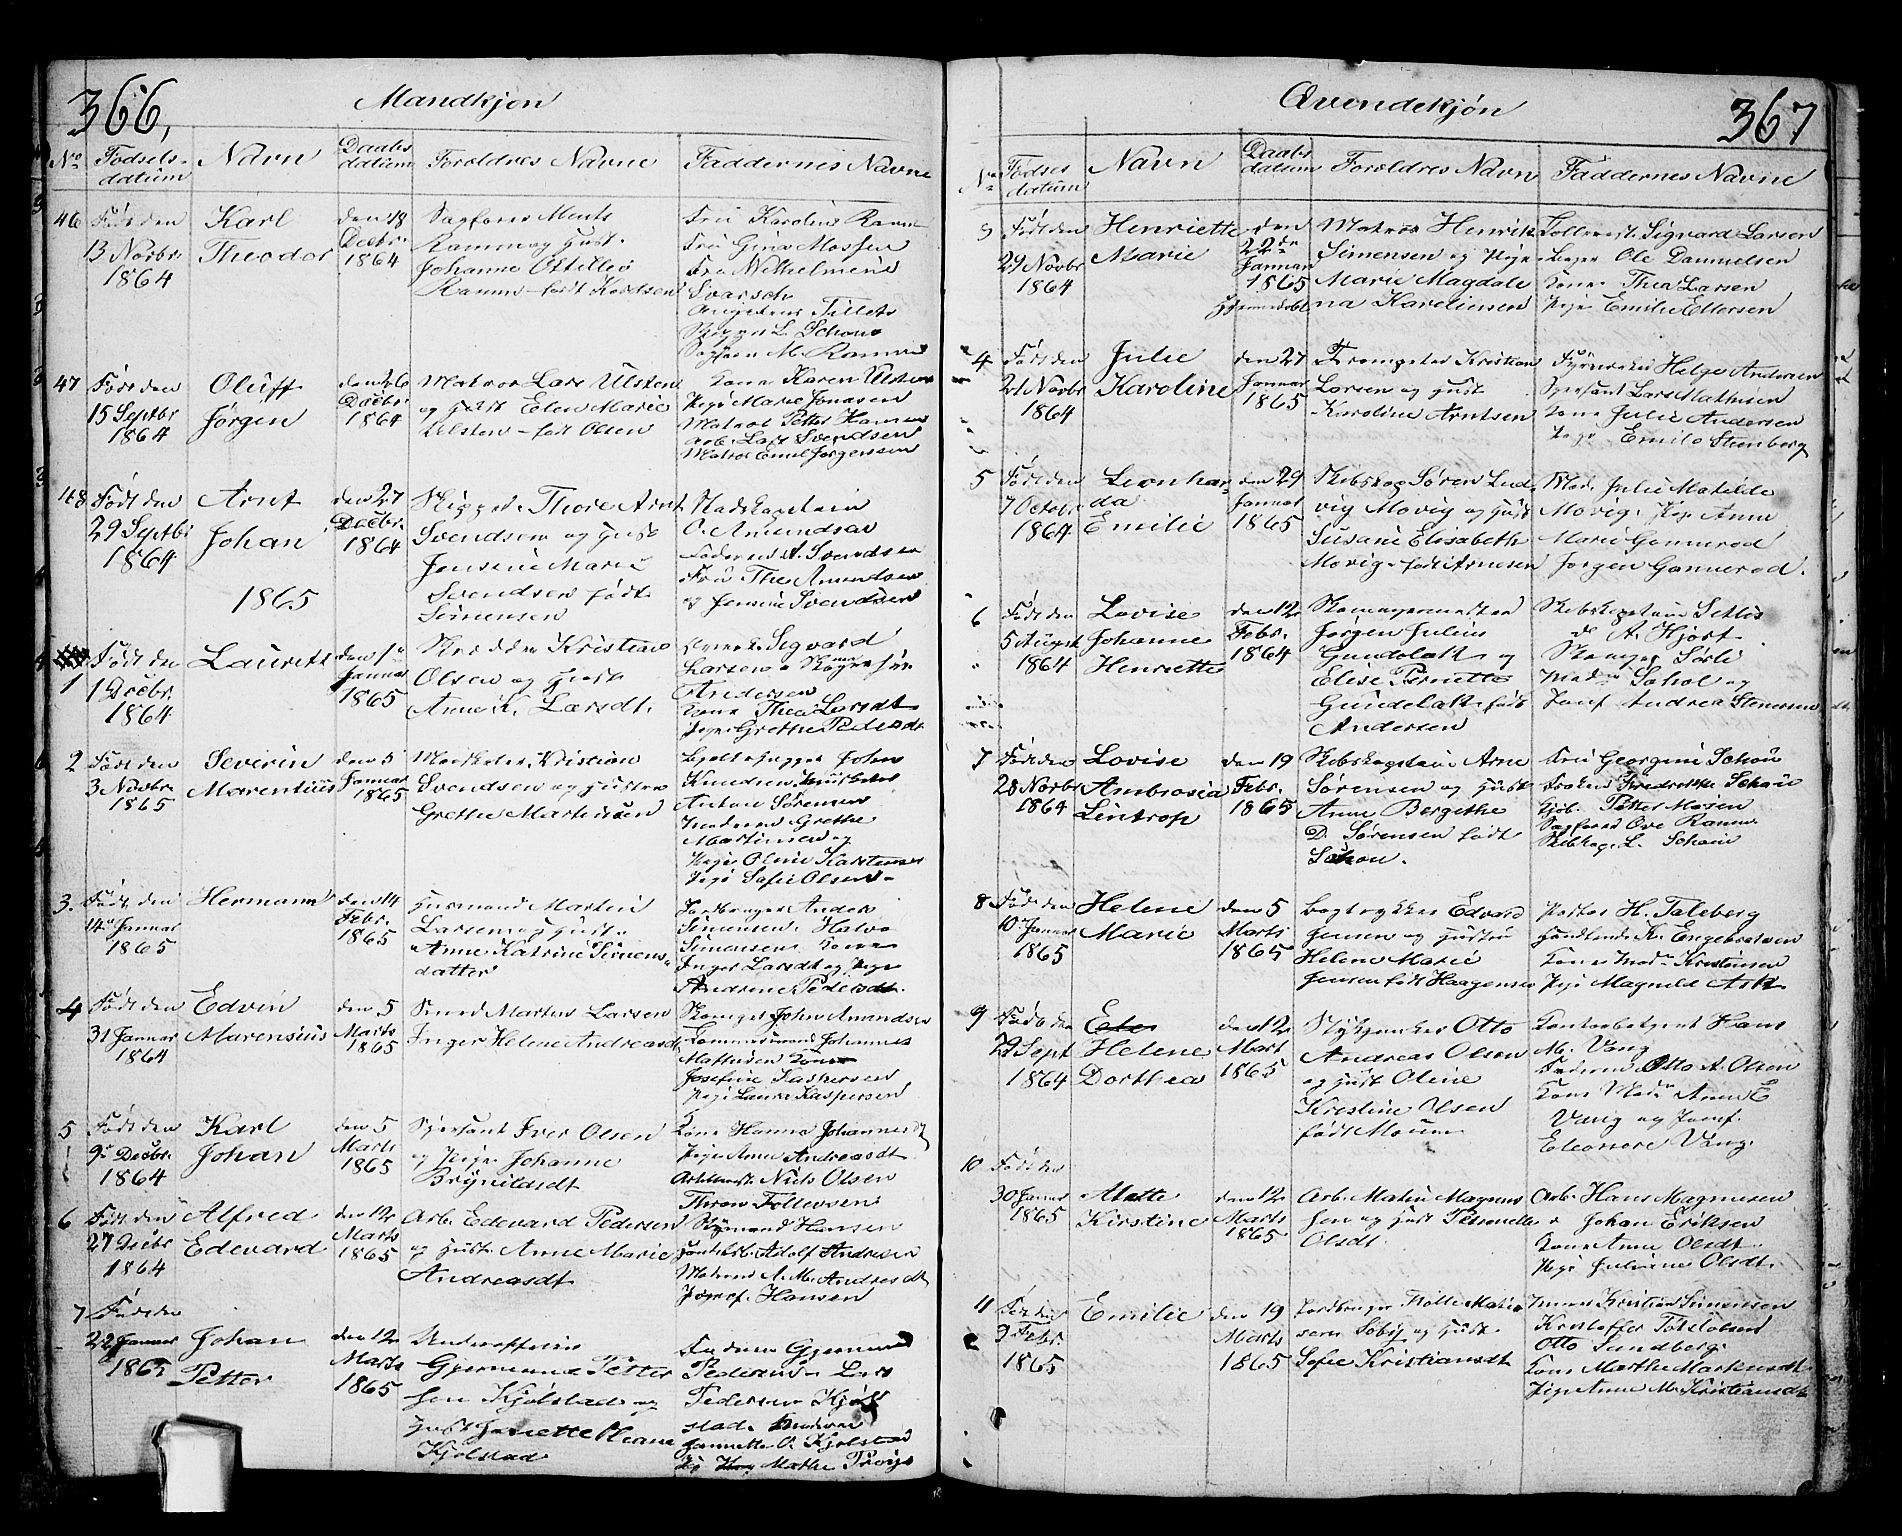 366,
Mandkjøn
No
Fødsels-
datum
Navn
Daabs
datum
Forældres Navne
Faddernes Navne
46
Født den
13 Novbr.
1864
Karl
Theodor
den 18
Decbr.
1864
Sagfører Ments
Ramm og Hust.
Johanne Ottillie
Ramm født Kordsen
Fru Karoline Ramm
Fru Gina Mossen
Fru Wilhelmine
Svarsch
L. Schou
M. Ramm
47
Født den
15 Septbr
1864
Oluff
Jørgen
den 26
Decbr.
1864
Matros Lars Ulsten
og Hust Elen Marie
Ulsten – født Olsen
Kone Karen Ulsten
Pige Marie Jonasen
Matros Petter Hansen
Arb. Lars Svendsen
Matros Emil Jørgensen
48
Født den
29 Septbr
1864
Arnt
Johan
den 27
Decbr.
1864
Skipper Thore Arnt
Svendsen og Hust
Jensine Marie
Svendsen født
Simensen
Skibskaptein
O. Amundsen
Faderen A. Svendsen
Fru Thea Amundsen
og Jensine Svendsen
1865
1
Født den
1 Decbr.
1864
Lauritz
den 1
Januar
1865
Skrædder Kristian
Olsen og Hust
Anne K. Larsdt.
Sigvard
Larsen
Andersen
Kone Thea Larsdt
Pige Grethe Pedersdt
2
Født den
3 Novbr.
1865
Severin
Marentius
den 5
Januar
1865
Kristian
Svendsen og Hustru
Grethe Martinsen
John
Knudsen
Anton Sørensen
Moderen Grethe
Martinsen og
Pige Oline Karstensen
Pige Sofie Olsen
3.
Født den
14 Januar
1865
Hermann
den 14
Febr.
1865
Husmand Martin
Larsen og Hust.
Anne Katrine Simens-
datter
Jordbruger Anders
Simensen. Halvo
Simensen Kone
Inger Larsdt og Pige
Andrine Pedersdt.
4
Født den
31 Januar
1864
Edvin
Marensius
den 5
Marts
1865
Smed Martin Larsen
Inger Helene Andreasdt
John Amundsen
Tømmermand Johannes
Mathisen Kone
Josefine Kaspersen
Pige Laura Kaspersen
5
Født den
9 Decbr.
1864
Karl
Johan
den 5
Marts
1865
Sjersant Iver Olsen
og Pige Johanne
Brynildsdt
Kone Hanna Johannesdt
Pige Anne Andreasdt
Niels Olsen
6
Født den
27 Decbr
1864
Alfred
Edevard
den 12
Marts
1865
Arb. Edevard Pedersen
og Hust. Anne Marie
Andreasdt
Styrmand Hansen
Adolf Andresen
A. M. Andresdt
Josef. Hansen
7
Født den
22 Januar
1865
Johan
Petter
den 12
Marts
1865
Underofficer
Gjermund Petter
sen Kjølstad og
Hust Janette Pleane
Kjølstad
Faderen Gjermund
Pedersen Lars
Pedersen Kjøl
stad
Jannette O. Kjølstad
Mathe
367
Qvindekjøn
No
Fødsels
datum
Navn
Daabs
datum
Forældres Navn
Faddernes Navne
3
Født den
29 Novbr
1864
Henriette
Marie
den
22de
Januar
1865
Hjemmedøbt
Matros Henrik
Simensen og Pige
Marie Magdale
na Karelinsen
Sigvard Larsen
Ole Danielsen
Kone Thea Larsen
Pige Emilie Ellersen
4
Født den
21 Novbr
1864
Julie
Karoline
den 27
Januar
1865
Trompeter Kristian
Larsen og Hust
Karoline Arntsen
Fyrværker Helge Andersen
Sjersant Lars Mathisen
Kone Julie Andersen
Pige Emilie Stenberg
5
Født den
7 Octobr
1864
Leonhar-
da
Emilie
den 29
Januar
1865
Skibskap Søren Lud
vig Movig og Hust
Susanne Elisabeth
Movig – født Arnesen
Mad. Julie Matilde
Movig. Pige Anne
Marie Gannerød
Jørgen Gannerød.
6
Født den
5 August
1864
Lovise
Johanne
Henriette
den 12
Febr.
1864
Skomagermester
Jørgen Julius
Gundelak og
Elise Pernelle
Gundelak født
Andersen
Skibskaptein
A. Hjort
Skomager Sørli
Andrea Stenersen
7
Født den
28 Novbr
1864
Lovise
Ambrosia
Lintrop
den 19
Febr.
1865
Skibskaptein Arne
Sørensen og Hust
Anne Bergethe
D. Sørensen født
Schou.
Fru Georgine Schou
Frøken Fredrikke Schou
Petter Mosen
Sagfører Ove Ramm
Skibskap. L. Schou
8
Født den
10 Januar
1865
Helene
Marie
den 5
Marts
1865
Bogtrykker Edvard
Jensen og Hustru
Helene Marie
Jensen født Haagensen
H. Taleberg
K. Engebretsen
Kone Mad. Kristensen
Pige Magnild Ask
9
Født den
22 Sept
1864
Helene
Dorthea
den 12
Mart
1865
Stykjunker Otto
Andreas Olsen
og Hust Oline
Kristine Olsen
født Moum
Kontorbetjent Hans
M. Vang
Faderen Otto A. Olsen
Kone Mad. Anne E
Vang og Jomf.
Eleonore Vang
10
Født den
30 Januar
1865
Mathe
Kirstine
den 12
Marts
1865
Arb. Matin Magnus
sen og Hust Petronelle
Olsdt
Arb. Hans Magnusen
Johan Eriksen
Kone Anne Olsdt.
Pige Julsine Olsdt.
11
Født den
9 Febr.
1865
Emilie
den 19
Marts
1865
Jordbruger Rolle Mathia
sen Søby og Hust.
Sofie Kristiansdt
Kristian Simensen
Kristoffer Torstensen
Otto Sundberg
Kone Marthe Martinsdt
Pige Anne M. Kristiansdt